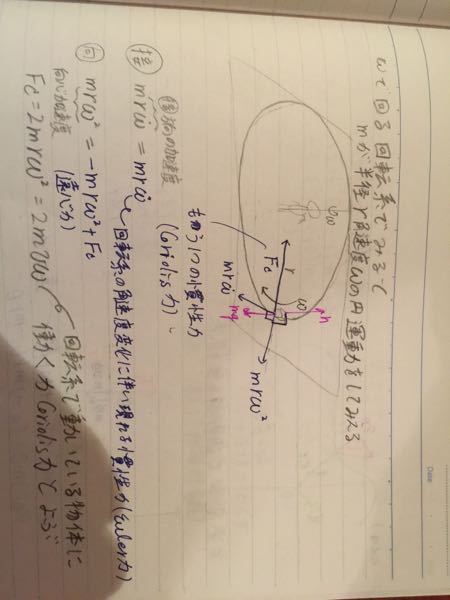 ωで回る回転系でみると
mが半径r角速度ωの円運動をしてみえる
ω
h
ω
r
Fc
mrω̇
mg
mrω²
もう1つの慣性力
(Coriolis力)
円周の加速度
接 mrω̇ = mrω̇
回転系の角速度変化に伴い現れる慣性力(Euler力)
向 mrω² = -mrω² + Fc
向心加速度
(遠心力)
Fc = 2mrω² = 2mvω
回転系で動いている物体に
働く力 Coriolis力とよぶ
Date